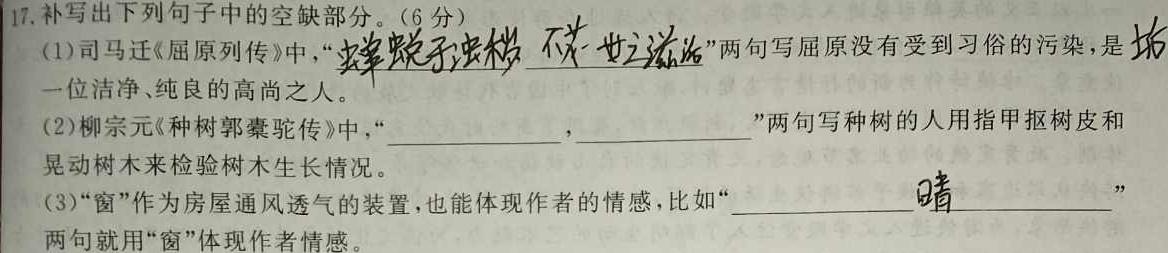 17.补写出下列句子中的空缺部分。(6分)
(1)司马迁《屈原列传》中,“蝉蜕于浊秽 不获世之滋垢”两句写屈原没有受到习俗的污染,是 垢
一位洁净、纯良的高尚之人。
(2)柳宗元《种树郭橐驼传》中,“____________,____________”两句写种树的人用指甲抠树皮和
晃动树木来检验树木生长情况。
(3)“窗”作为房屋通风透气的装置,也能体现作者的情感,比如“____________晴____________”
两句就用“窗”体现作者情感。